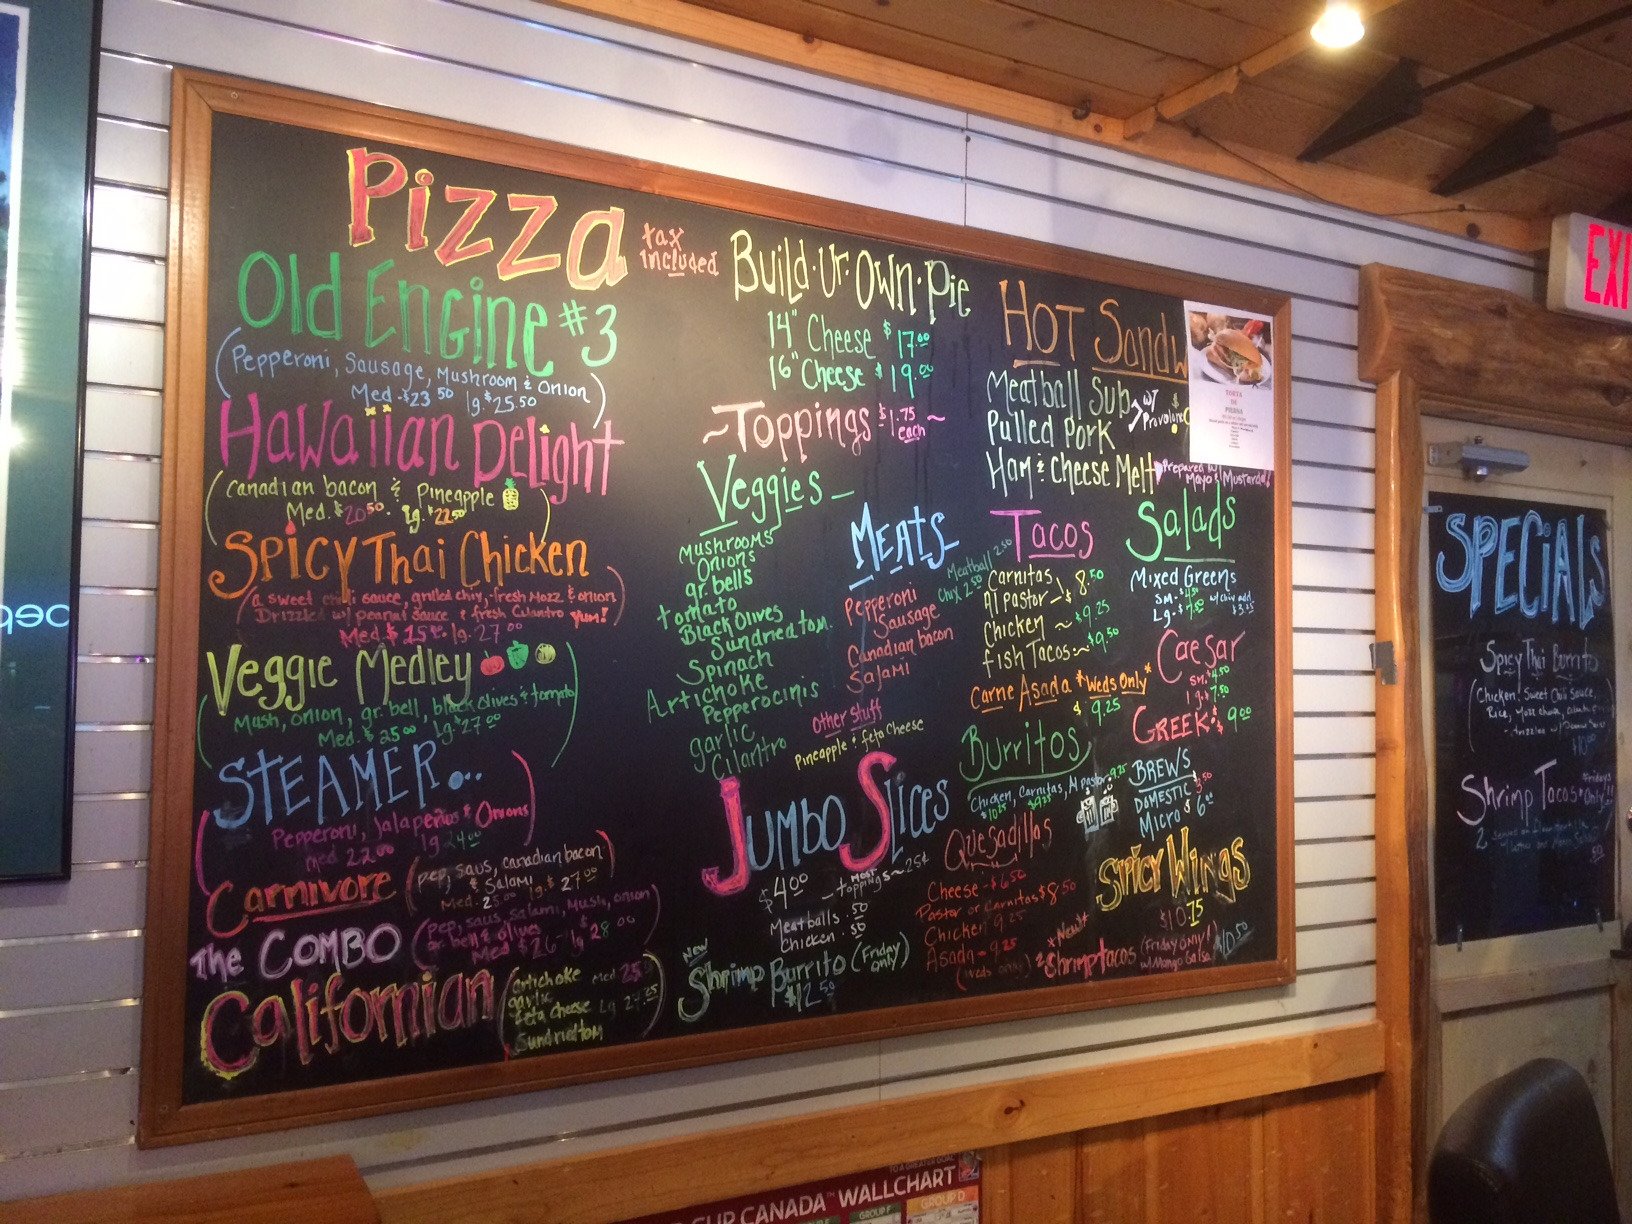 Pizza
tax
included
Old Engine #3
(Pepperoni, Sausage, Mushroom & Onion)
Med - $23.50 lg. $25.50
Hawaiian Delight
(Canadian bacon & Pineapple)
Med. $20.50 - lg. $22.50
Spicy Thai Chicken
(a sweet chili sauce, grilled chix, fresh Mozz & onion
Drizzled w/ peanut sauce & fresh Cilantro Yum!)
Med $ lg. 27.00
Veggie Medley
(Mush, onion, gr. bell, black olives & tomato)
Med. $25.00 lg. $27.00
STEAMER
(Pepperoni, Jalapeños & Onions)
med 22.00 lg 24.00
Carnivore (pep, saus, canadian bacon
& Salami)
Med. 25.00 lg. $27.00
The COMBO (pep, saus, salami, mush, onion
gr. bell & olives)
Med $26 - lg $28.00
Californian (artichoke
garlic
feta cheese
Sundriedtom)
Med 25
Lg. 27.25
Build-Ur-Own-Pie
14" Cheese $17.00
16" Cheese $19.00
~Toppings $1.75 each~
Veggies -
Mushrooms
Onions
gr. bells
tomato
Black Olives
Sundriedtom.
Spinach
Artichoke
Pepperocinis
garlic
Cilantro
MEATS
Meatball 2.50
Chix 2.50
Pepperoni
Sausage
Canadian bacon
Salami
Other Stuff
Pineapple + feta Cheese
Jumbo Slices
$4.00 - most toppings ~ 25¢
Meatballs .50
Chicken .50
NEW
Shrimp Burrito (Friday Only)
$12.50
HOT Sandw
Meatball Sub
Pulled Pork
w/ Provolone
Ham & Cheese Melt
Prepared w/
Mayo & Mustard!
TORTA
DE
PIERNA
Tacos
Carnitas
Al Pastor - $8.50
Chicken ~ $9.25
fish Tacos ~ $9.50
Carne Asada *Weds Only*
$9.25
Burritos
Chicken, Carnitas, Al pastor 9.25
$10.25 $9.25
Quesadillas
Cheese - $6.50
Pastor or Carnitas $8.50
Chicken 9.25
Asada - 9.25
(Weds only)
Salads
Mixed Greens
sm. $
Lg. $
w/ chix add
Caesar
sm. $4.50
lg. 7.50
GREEK: $9.00
BREWS
DOMESTIC 3.50
Micro $6.00
Spicy Wings
$10.75
*New!*
2 Shrimp tacos (Friday only!)
w/ Mango Salsa
$10.50
EXI
SPECIALS
Spicy Thai Burrito
(Chicken, Sweet Chili Sauce,
Rice,
$10.00
Shrimp Tacos
Fridays
Only!!
2
TO A GREATER GOAL
CUP CANADA WALLCHART
GROUP F
GROUP D